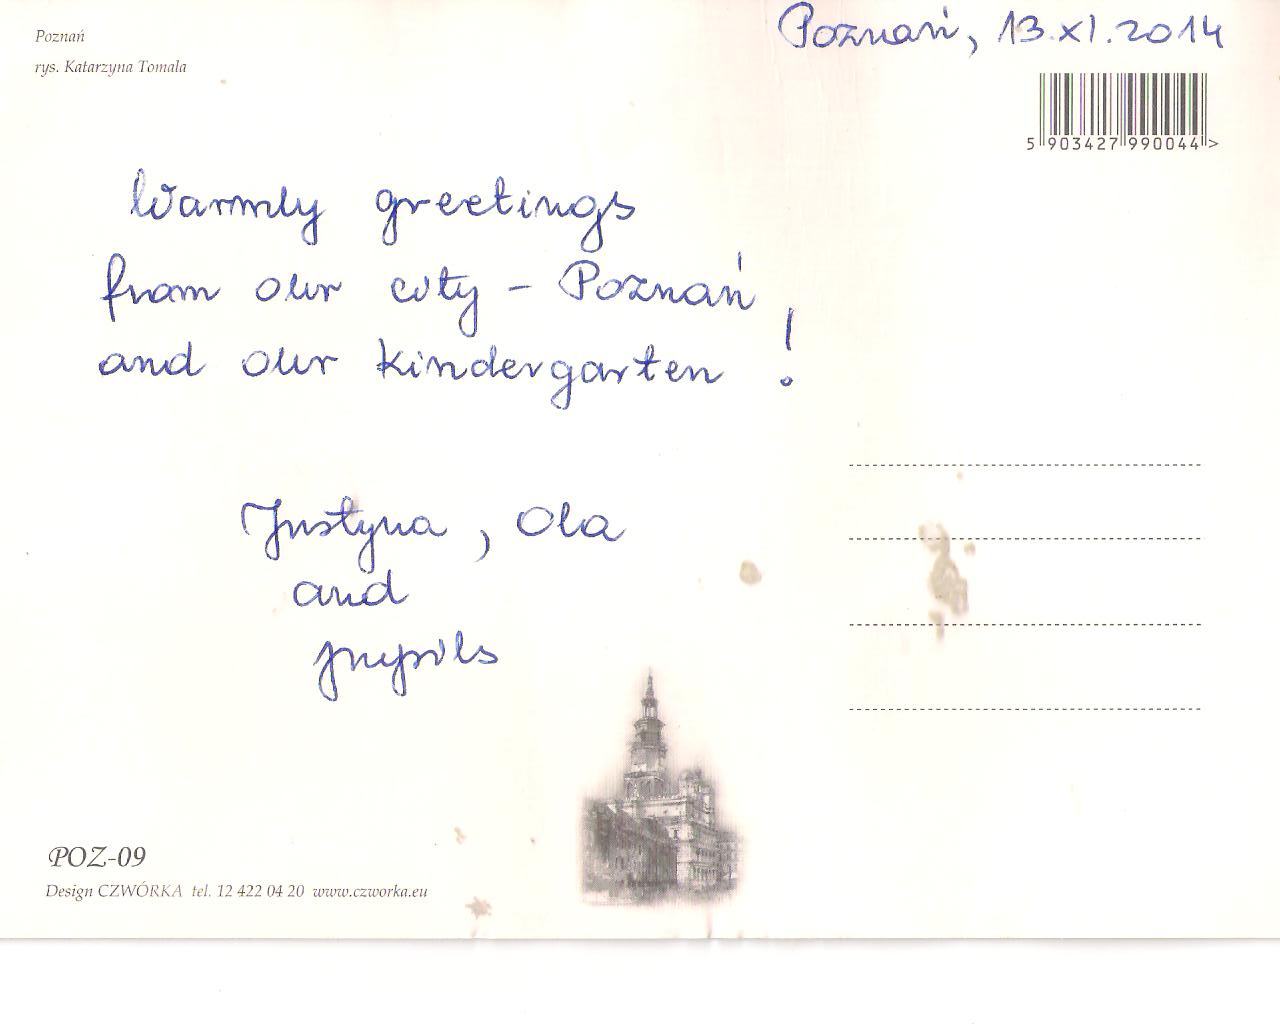 Poznań
rys. Katarzyna Tomala
Poznań, 13.XI.2014
5 903427 990044 >
Warmly greetings
from our city - Poznań
and our kindergarten !
Justyna, Ola
and
pupils
POZ-09
Design CZWÓRKA tel. 12 422 04 20 www.czworka.eu